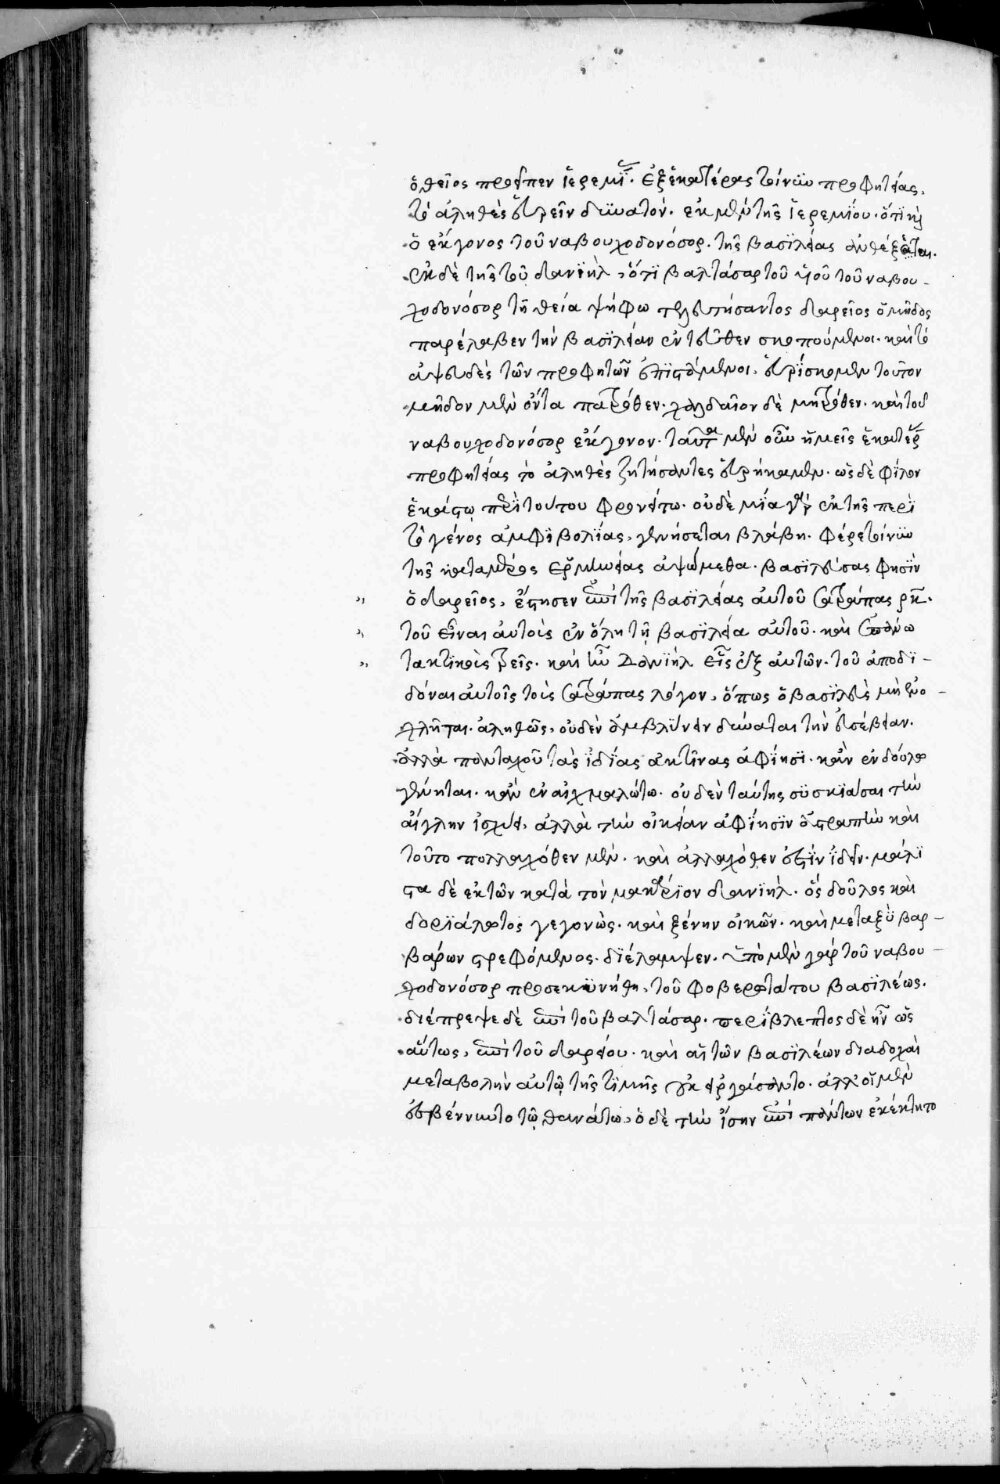 ὁ θεῖος προεῖπεν ἱερεμί. ἐξ ἑκατέρας τοίνυν προφητείας,
τὸ ἀληθὲς εὑρεῖν δυνατόν. ἐκ μὲν τῆς ἱερεμίου. ὅτι καὶ
ὁ ἔκγονος τοῦ ναβουχοδονόσορ. τῆς βασιλείας ἀνθέξεται.
ἐκ δὲ τῆς τοῦ δανιὴλ, ὅτι βαλτάσαρ τοῦ υἱοῦ τοῦ ναβου-
χοδονόσορ τῇ θεία ψήφω τελευτήσαντος δαρεῖος ὁ μῆδος
παρέλαβεν τὴν βασιλείαν ἐντεῦθεν σκοπούμενοι. καὶ τὸ
ἀψευδὲς τῶν προφητῶν ἐπιστάμενοι, εὑρίσκομεν τοῦτον
μῆδον μὲν ὄντα πατρόθεν. χαλδαῖον δὲ μητρόθεν. καὶ τοῦ
ναβουχοδονόσορ ἔκγονον. ταῦτα μὲν οὖν ἡμεῖς ἑκατέρας
προφητείας τὸ ἀληθὲς ζητήσαντες εὑρήκαμεν. ὡς δὲ φίλον
ἑκάστω περὶ τούτου φρονείτω. οὐδὲ μία γὰρ ἐκ τῆς περὶ
τὸ γένος ἀμφιβολίας, γενήσεται βλάβη. φέρε τοίνυν
τῆς κατὰ μέρος ἑρμηνείας ἁψώμεθα. βασιλεύσας φησὶν
ὁ δαρεῖος, ἔστησεν ἐπὶ τῆς βασιλείας αὐτοῦ σατράπας ρκ.
τοῦ εἶναι αὐτοὺς ἐν ὅλη τῇ βασιλεία αὐτοῦ. καὶ ἐπάνω
τακτικοὺς τρεῖς. καὶ ἦν Δανιὴλ εἷς ἐξ αὐτῶν. τοῦ ἀποδι-
δόναι αὐτοῖς τοὺς σατράπας λόγον, ὅπως ὁ βασιλεὺς μὴ ἐνο-
χλῆται. ἀληθῶς, οὐδὲν ἀμβλύνειν δύναται τὴν εὐσέβειαν.
ἀλλὰ πανταχοῦ τὰς ἰδίας ἀκτῖνας ἀφίησι. κἂν ἐν δούλω
γένηται. κἂν ἐν αἰχμαλώτω. οὐδὲν ταύτης συσκιάσαι τὴν
αἴγλην ἰσχύει, ἀλλὰ τὴν οἰκείαν ἀφίησιν ἀστραπὴν καὶ
τοῦτο πολλαχόθεν μὲν. καὶ ἀλλαχόθεν ἐστὶν ἰδεῖν. μάλι
στα δὲ ἐκ τῶν κατὰ τὸν μακάριον δανιὴλ. ὃς δοῦλος καὶ
δοριάλωτος γεγονὼς. καὶ ξένην οἰκῶν. καὶ μεταξὺ βαρ-
βάρων στρεφόμενος. διέλαμψεν. ὑπὸ μὲν γὰρ τοῦ ναβου-
χοδονόσορ προσεκυνήθη, τοῦ φοβερωτάτου βασιλέως.
διέπρεψε δὲ ἐπὶ τοῦ βαλτάσαρ. περίβλεπτος δὲ ἦν ὡς
αύτως, ἐπὶ τοῦ δαρείου. καὶ αἱ τῶν βασιλέων διαδοχαὶ
μεταβολὴν αὐτῷ τῆς τιμῆς οὐκ εἰργάσαντο. ἀλλ' οἱ μὲν
ἐσβέννυντο τῷ θανάτω, ὁ δὲ τὴν ἴσην ἐπὶ πάντων ἐκέκτητο